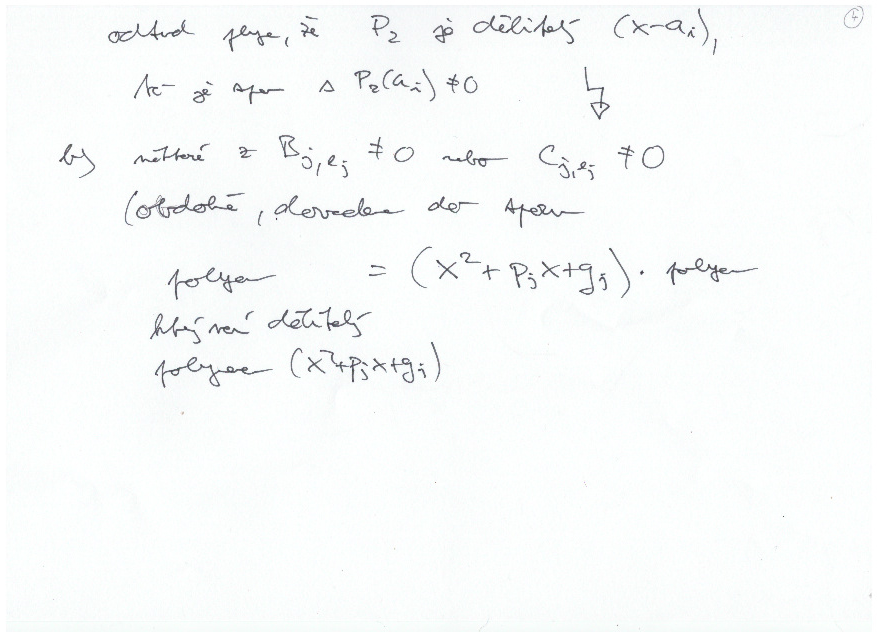 4
odtud plyne, že P₂ je dělitelý (x-aᵢ),
to je spor s P₂(aᵢ) ≠ 0 ↯
b) některé z B_{j,ej} ≠ 0 nebo C_{j,ej} ≠ 0
(obdobně, dovedeme do sporu
polynom = (x²+pⱼx+gⱼ) · polynom
který není dělitelý
polynomem (x²+pⱼx+gⱼ)